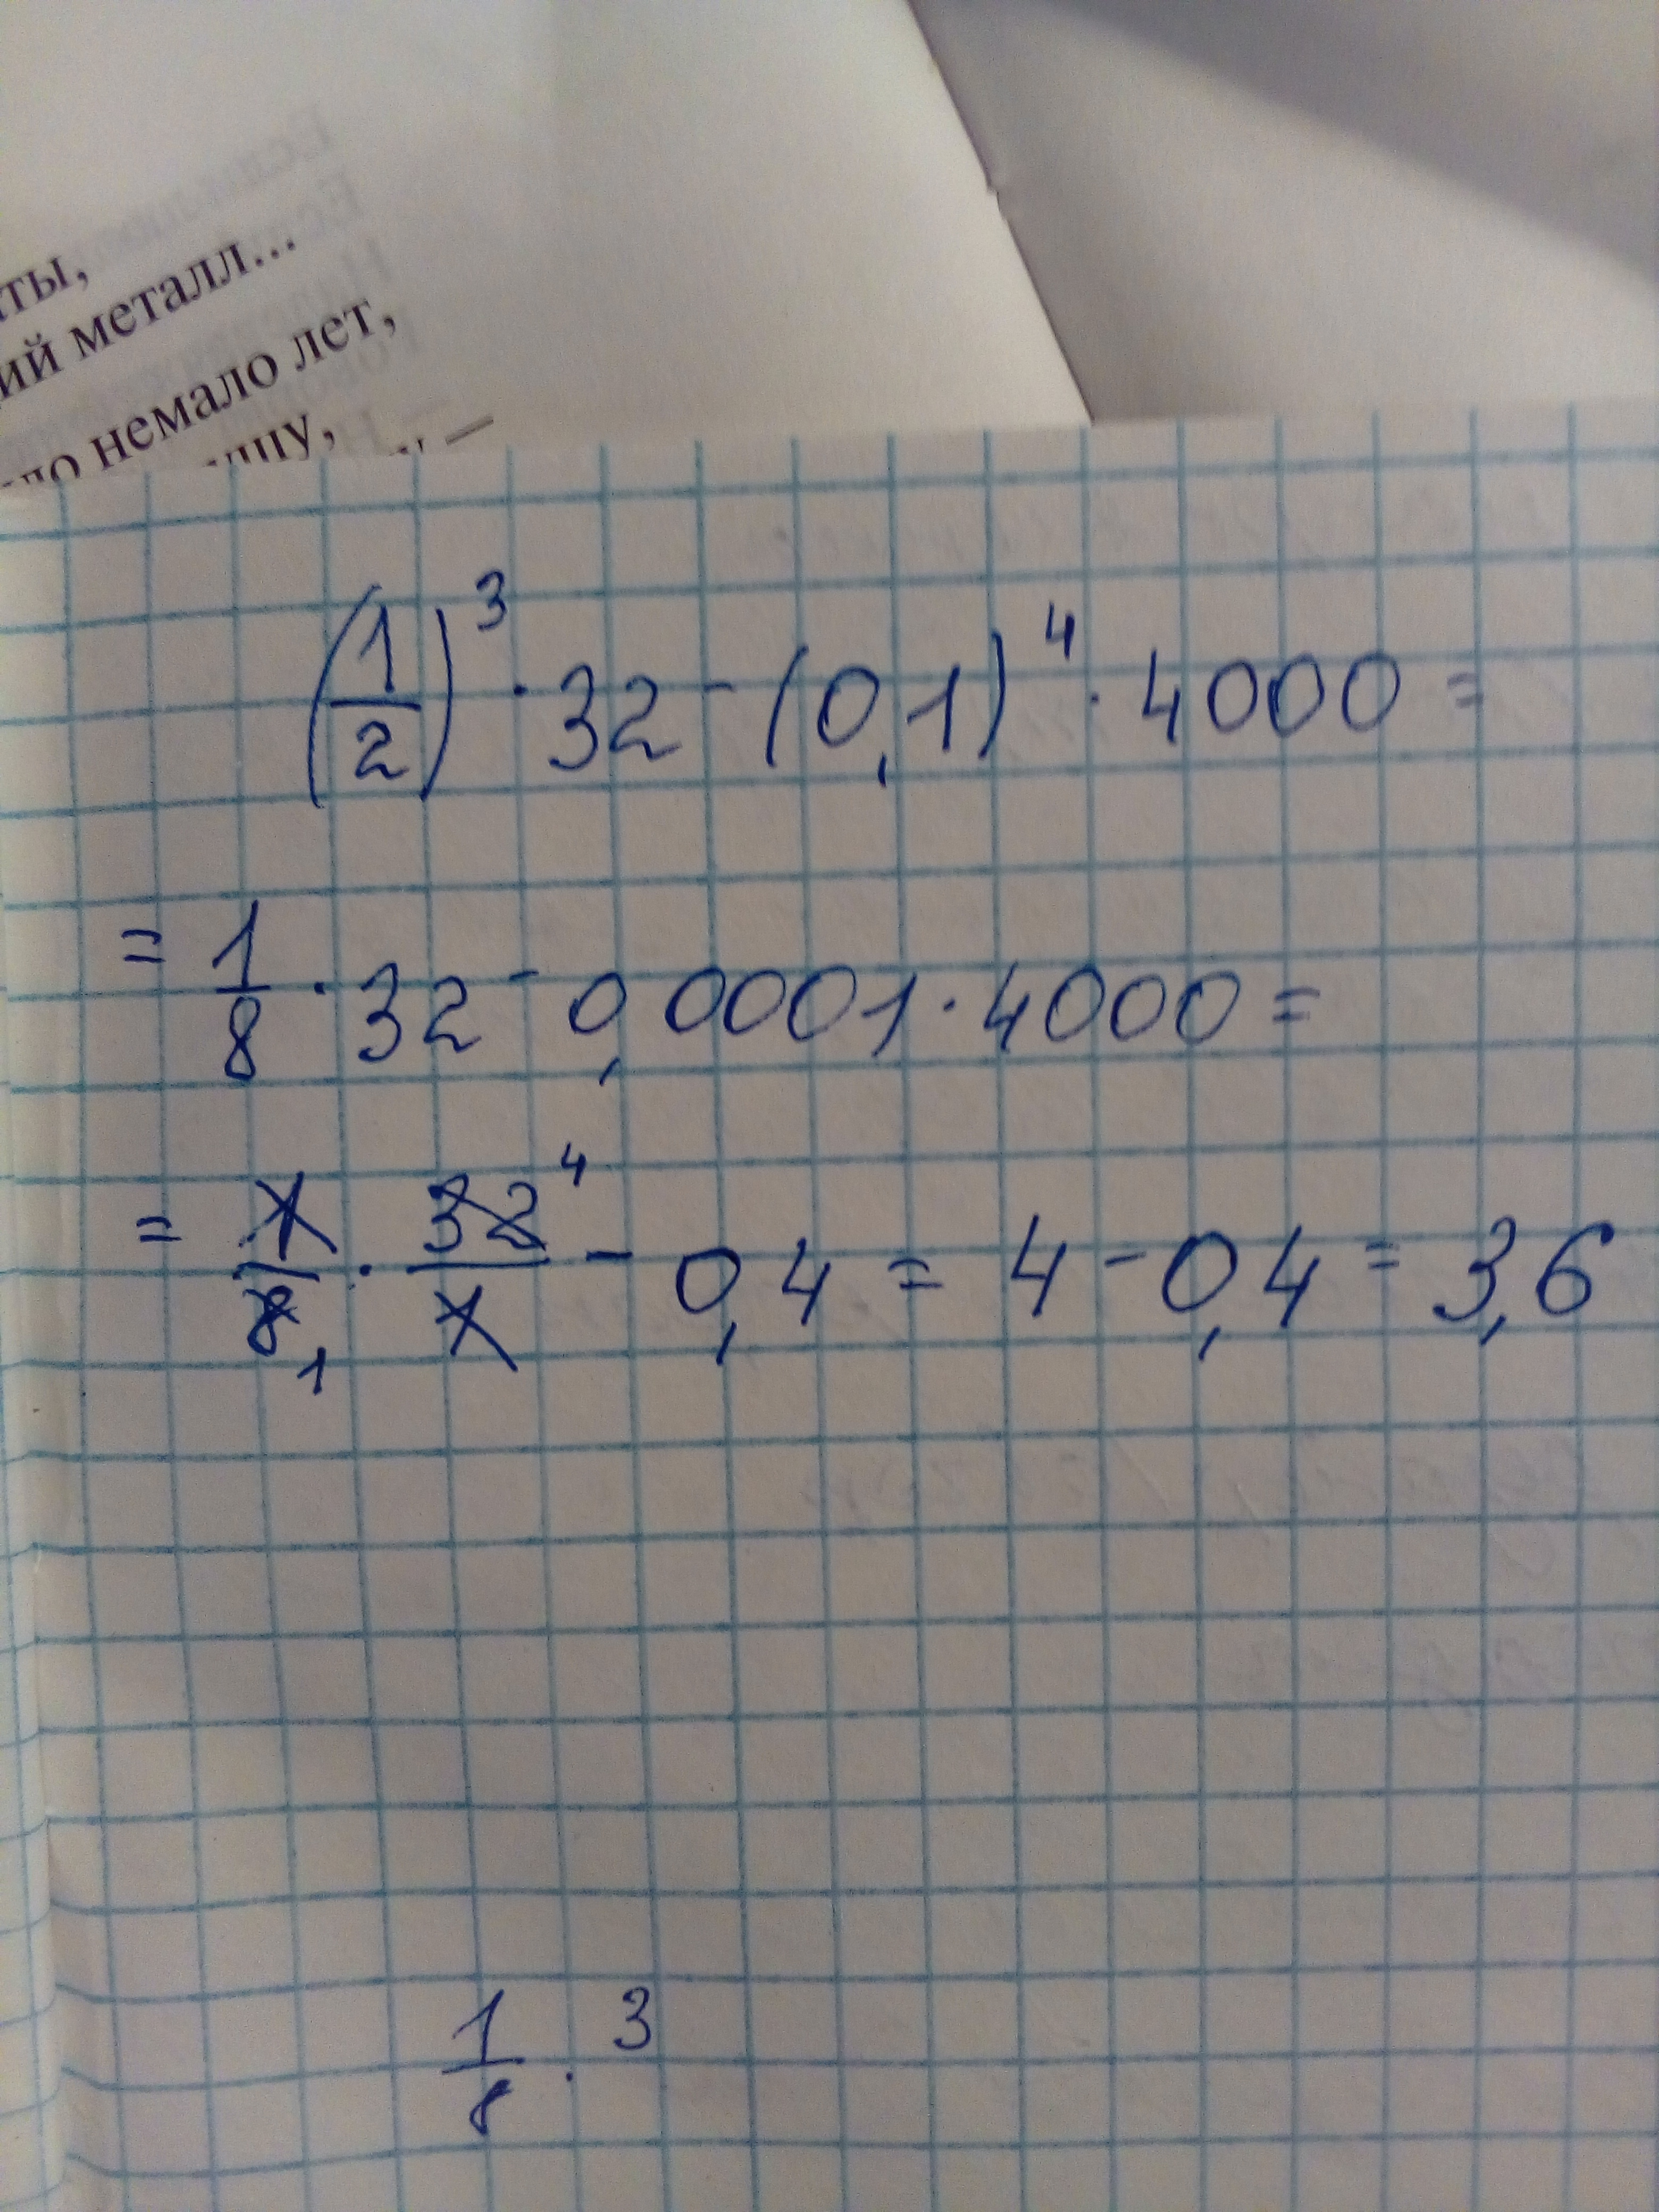 ты,
ий металл...
ло немало лет,
ишу,
(1/2)³ · 32 - (0,1)⁴ · 4000 =
= 1/8 · 32 - 0,0001 · 4000 =
= 1/8 1 · 32 4/1 - 0,4 = 4 - 0,4 = 3,6
1/8 · 3